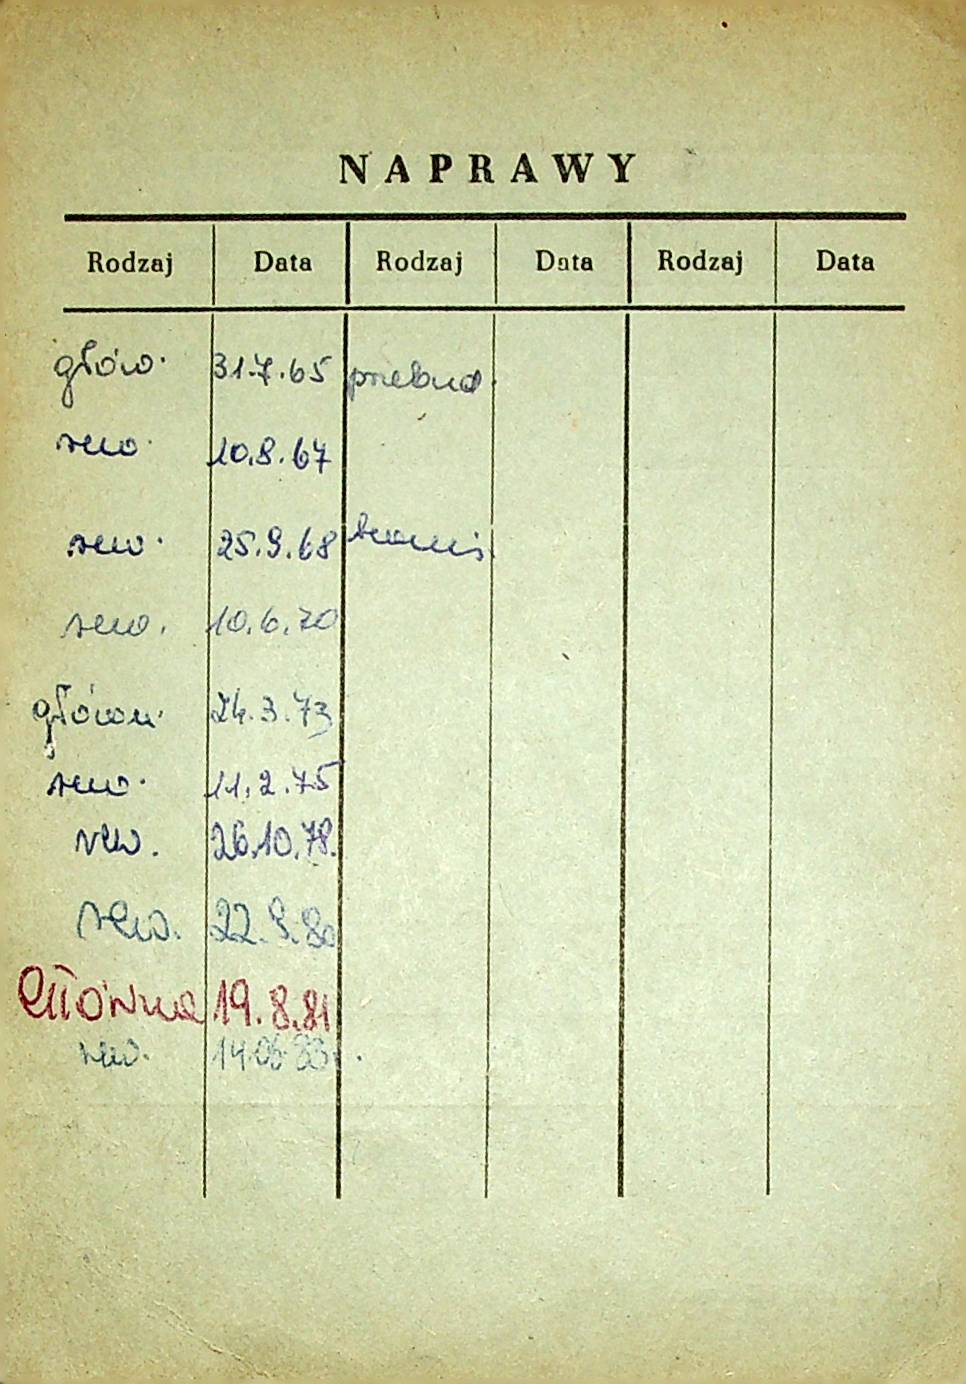 NAPRAWY
Rodzaj Data Rodzaj Data Rodzaj Data
głów. 31.7.65 przebud.
rew. 10.8.67
rew. 25.9.68
rew. 10.6.70
główn. 24.3.73
rew. 11.2.75
rew. 26.10.78.
rew. 22.9.80
Główna 19.8.81
rew. 14.06.83r.